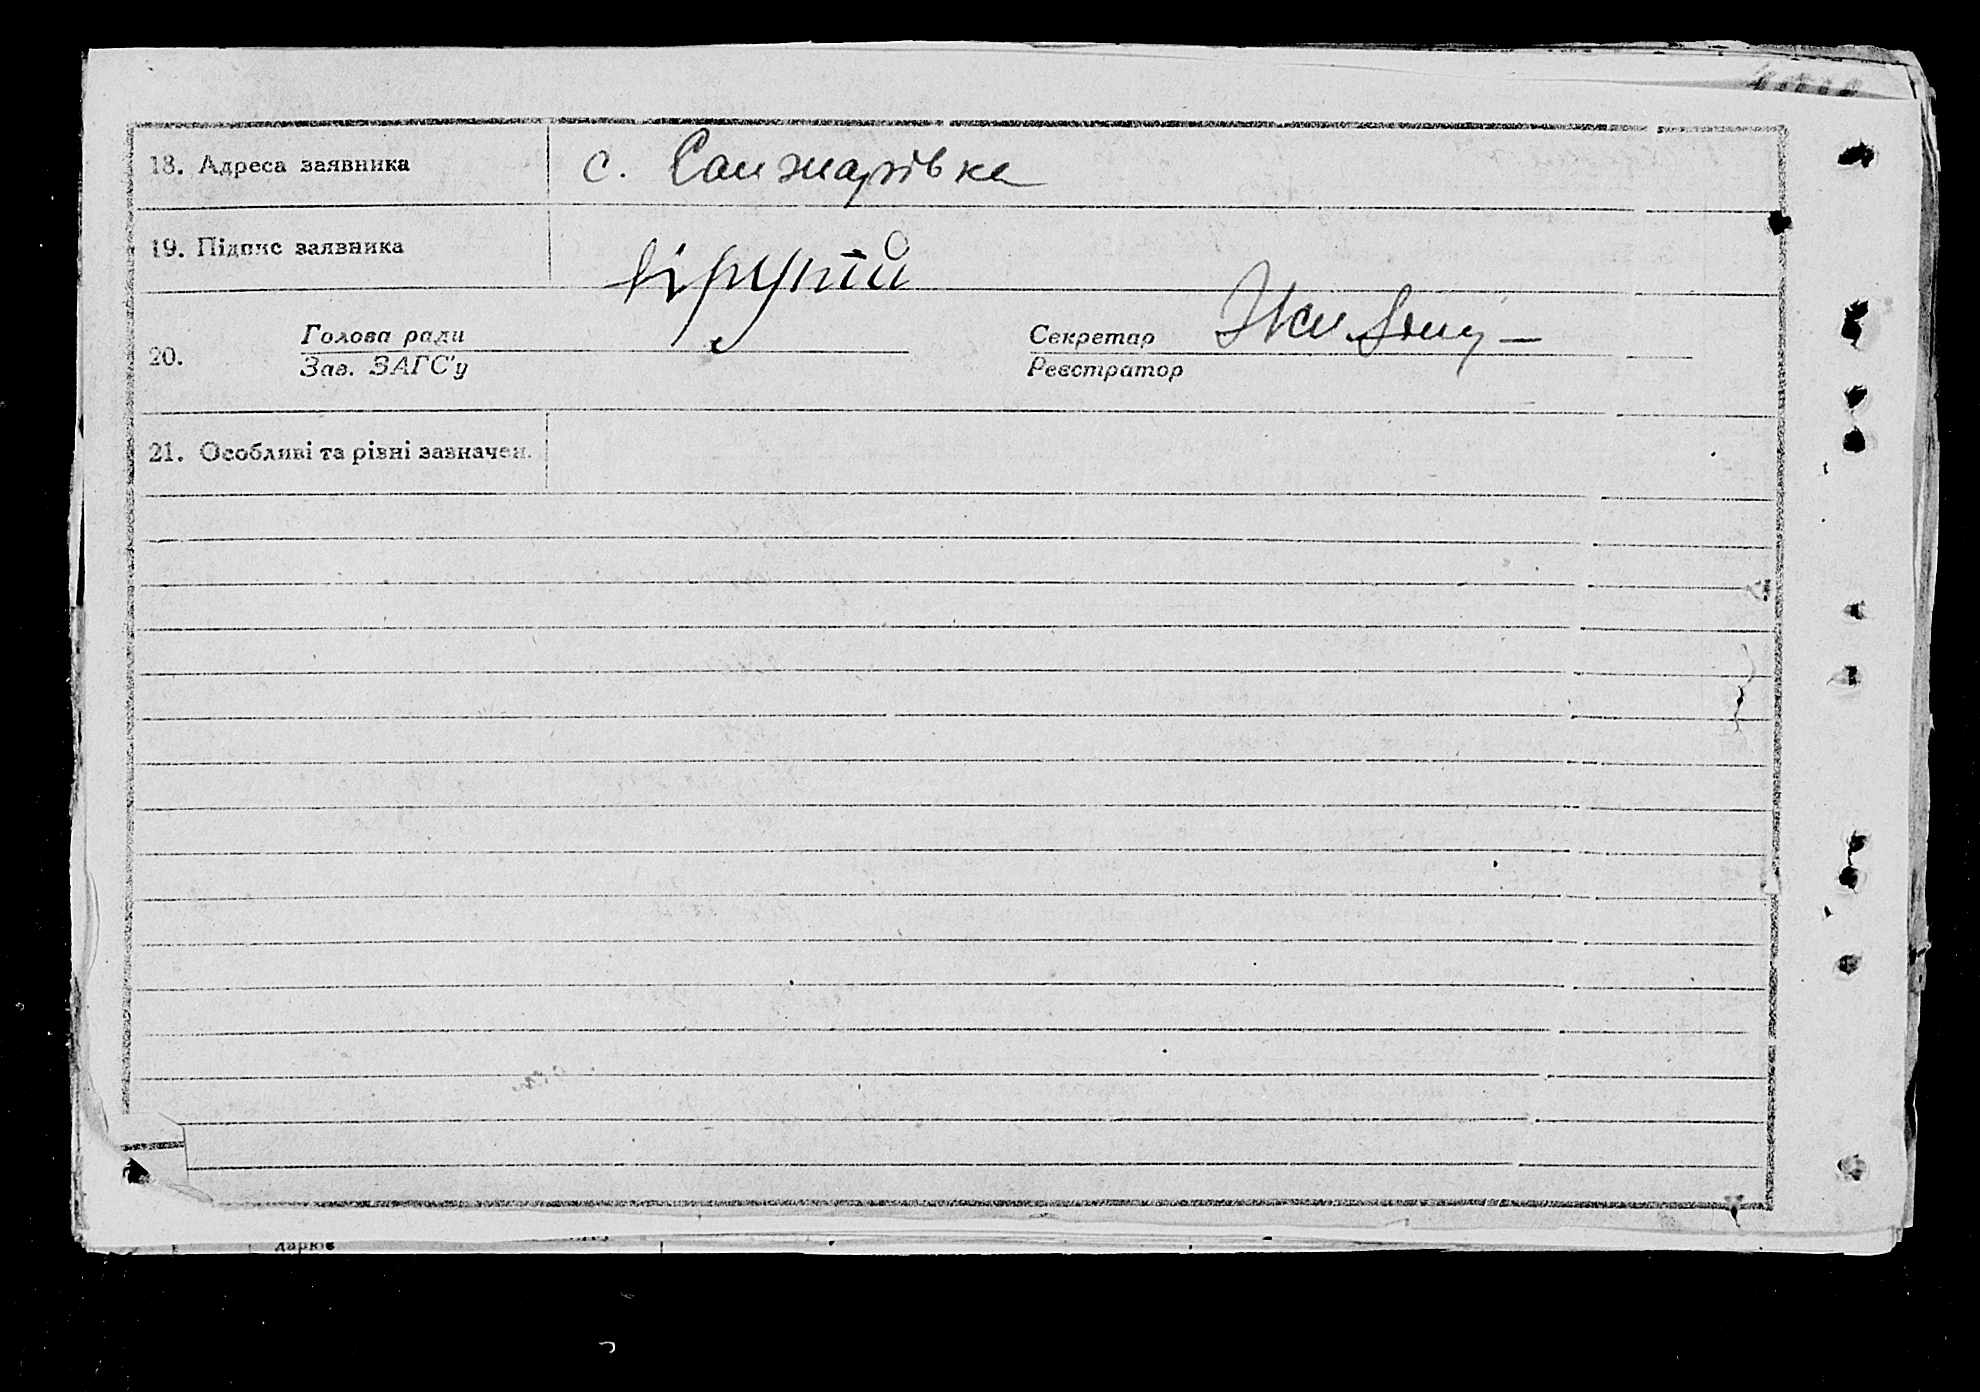 18. Адреса заявника с. Санжарівка
19. Підпис заявника
20. Голова ради Секретар
Зав. ЗАГС'у Реєстратор
21. Особливі та різні зазначен.